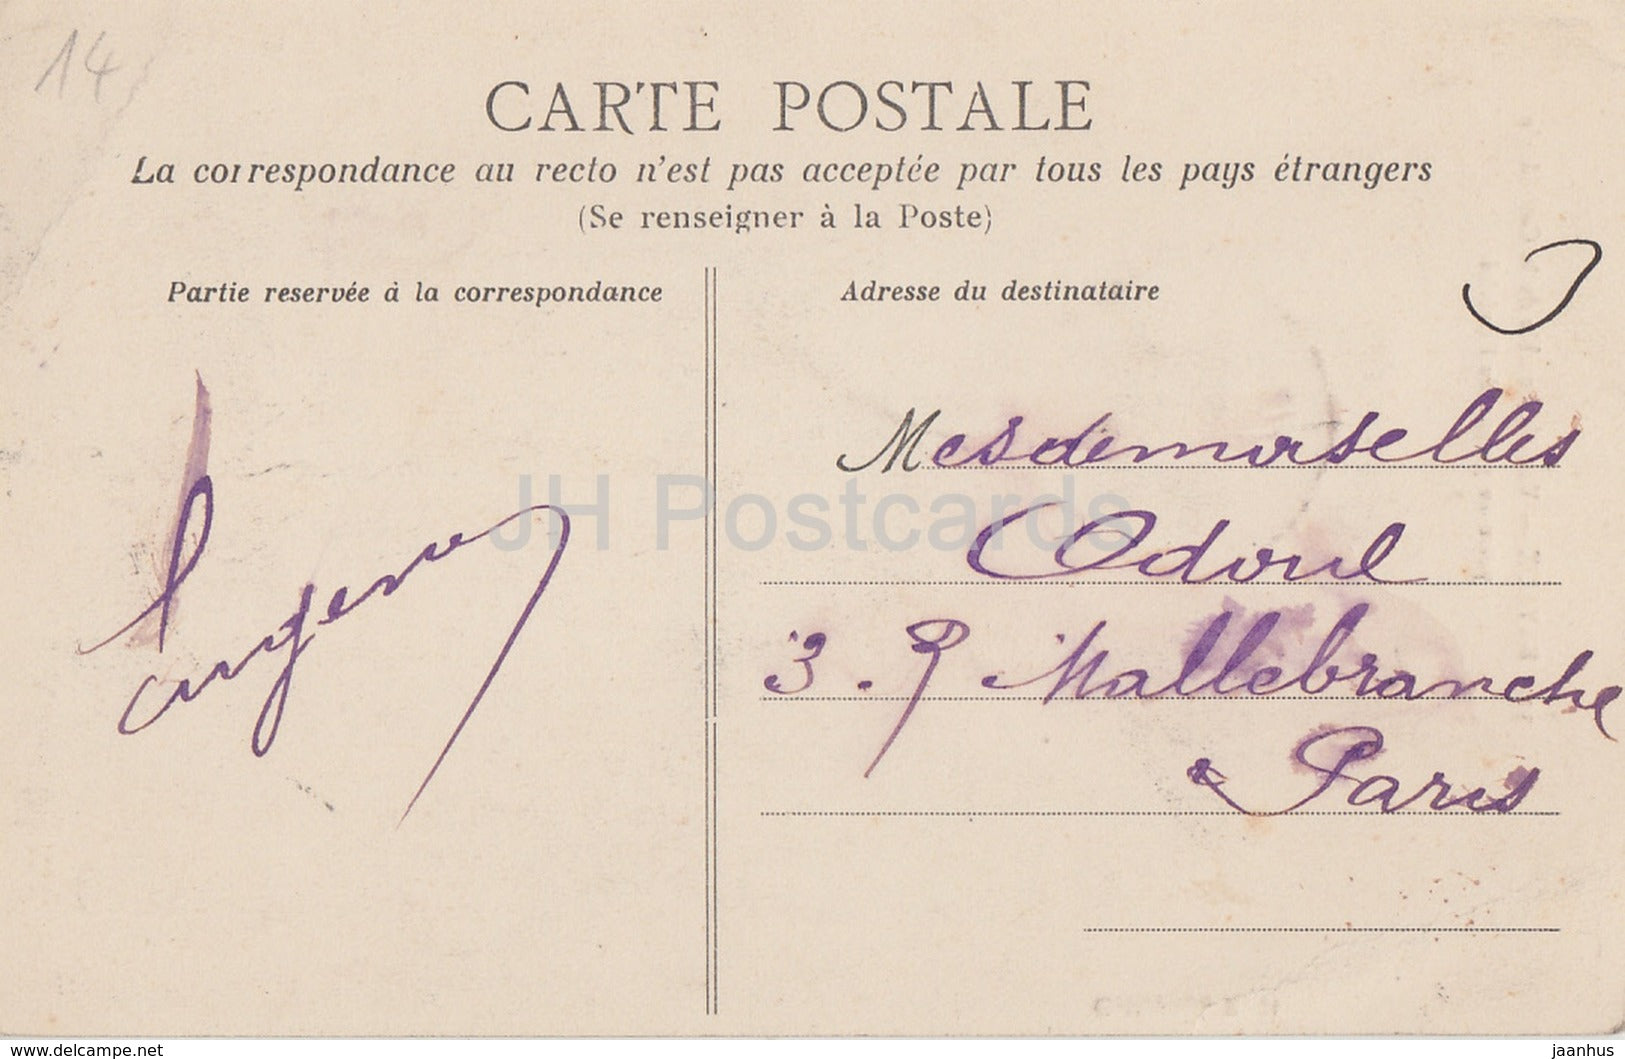 14
CARTE POSTALE
La correspondance au recto n'est pas acceptée par tous les pays étrangers
(Se renseigner à la Poste)
Partie reservée à la correspondance
Adresse du destinataire
Mesdemoiselles
Odoul
3. R Mallebranche
Paris
JH Postcards
www.delcampe.net
jaanhus